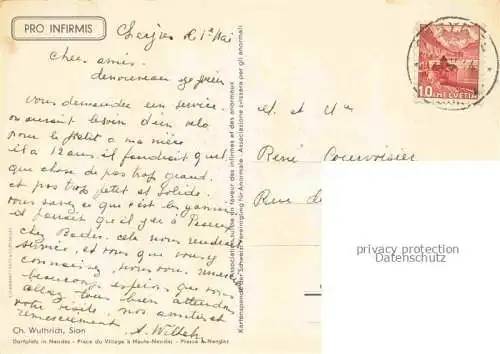 PRO INFIRMIS
Leysin le 1er Mai
Chers amis.
denouveau je viens
vous demander un service.
on aurait besoin d'un vélo
pour le petit a ma nièce
il a 12 ans il faudrait quel
que chose de pas trop grand.
et pas trop petit et solide.
vous savez ce que c'est les gamins
il parait qu'il y en a
chez cela nous rendrait
service, et vous que vous y
connaissez, nous vous remercions
beaucoup espérons que vous
allez tous bien attendons
votre visite, nos amitiés et
remerciements. A.
Ch. Wuthrich, Sion
Dorfplatz in Nendaz - Place du Village à Haute-Nendaz - Piazza à Nendaz
Association suisse en faveur des infirmes et des anormaux
Kartenspende der Schweiz. Vereinigung für Anormale · Associazione svizzera per gli anormali
10 HELVETIA
M. et Me
René Courvoisier
Rue de
privacy protection
Datenschutz